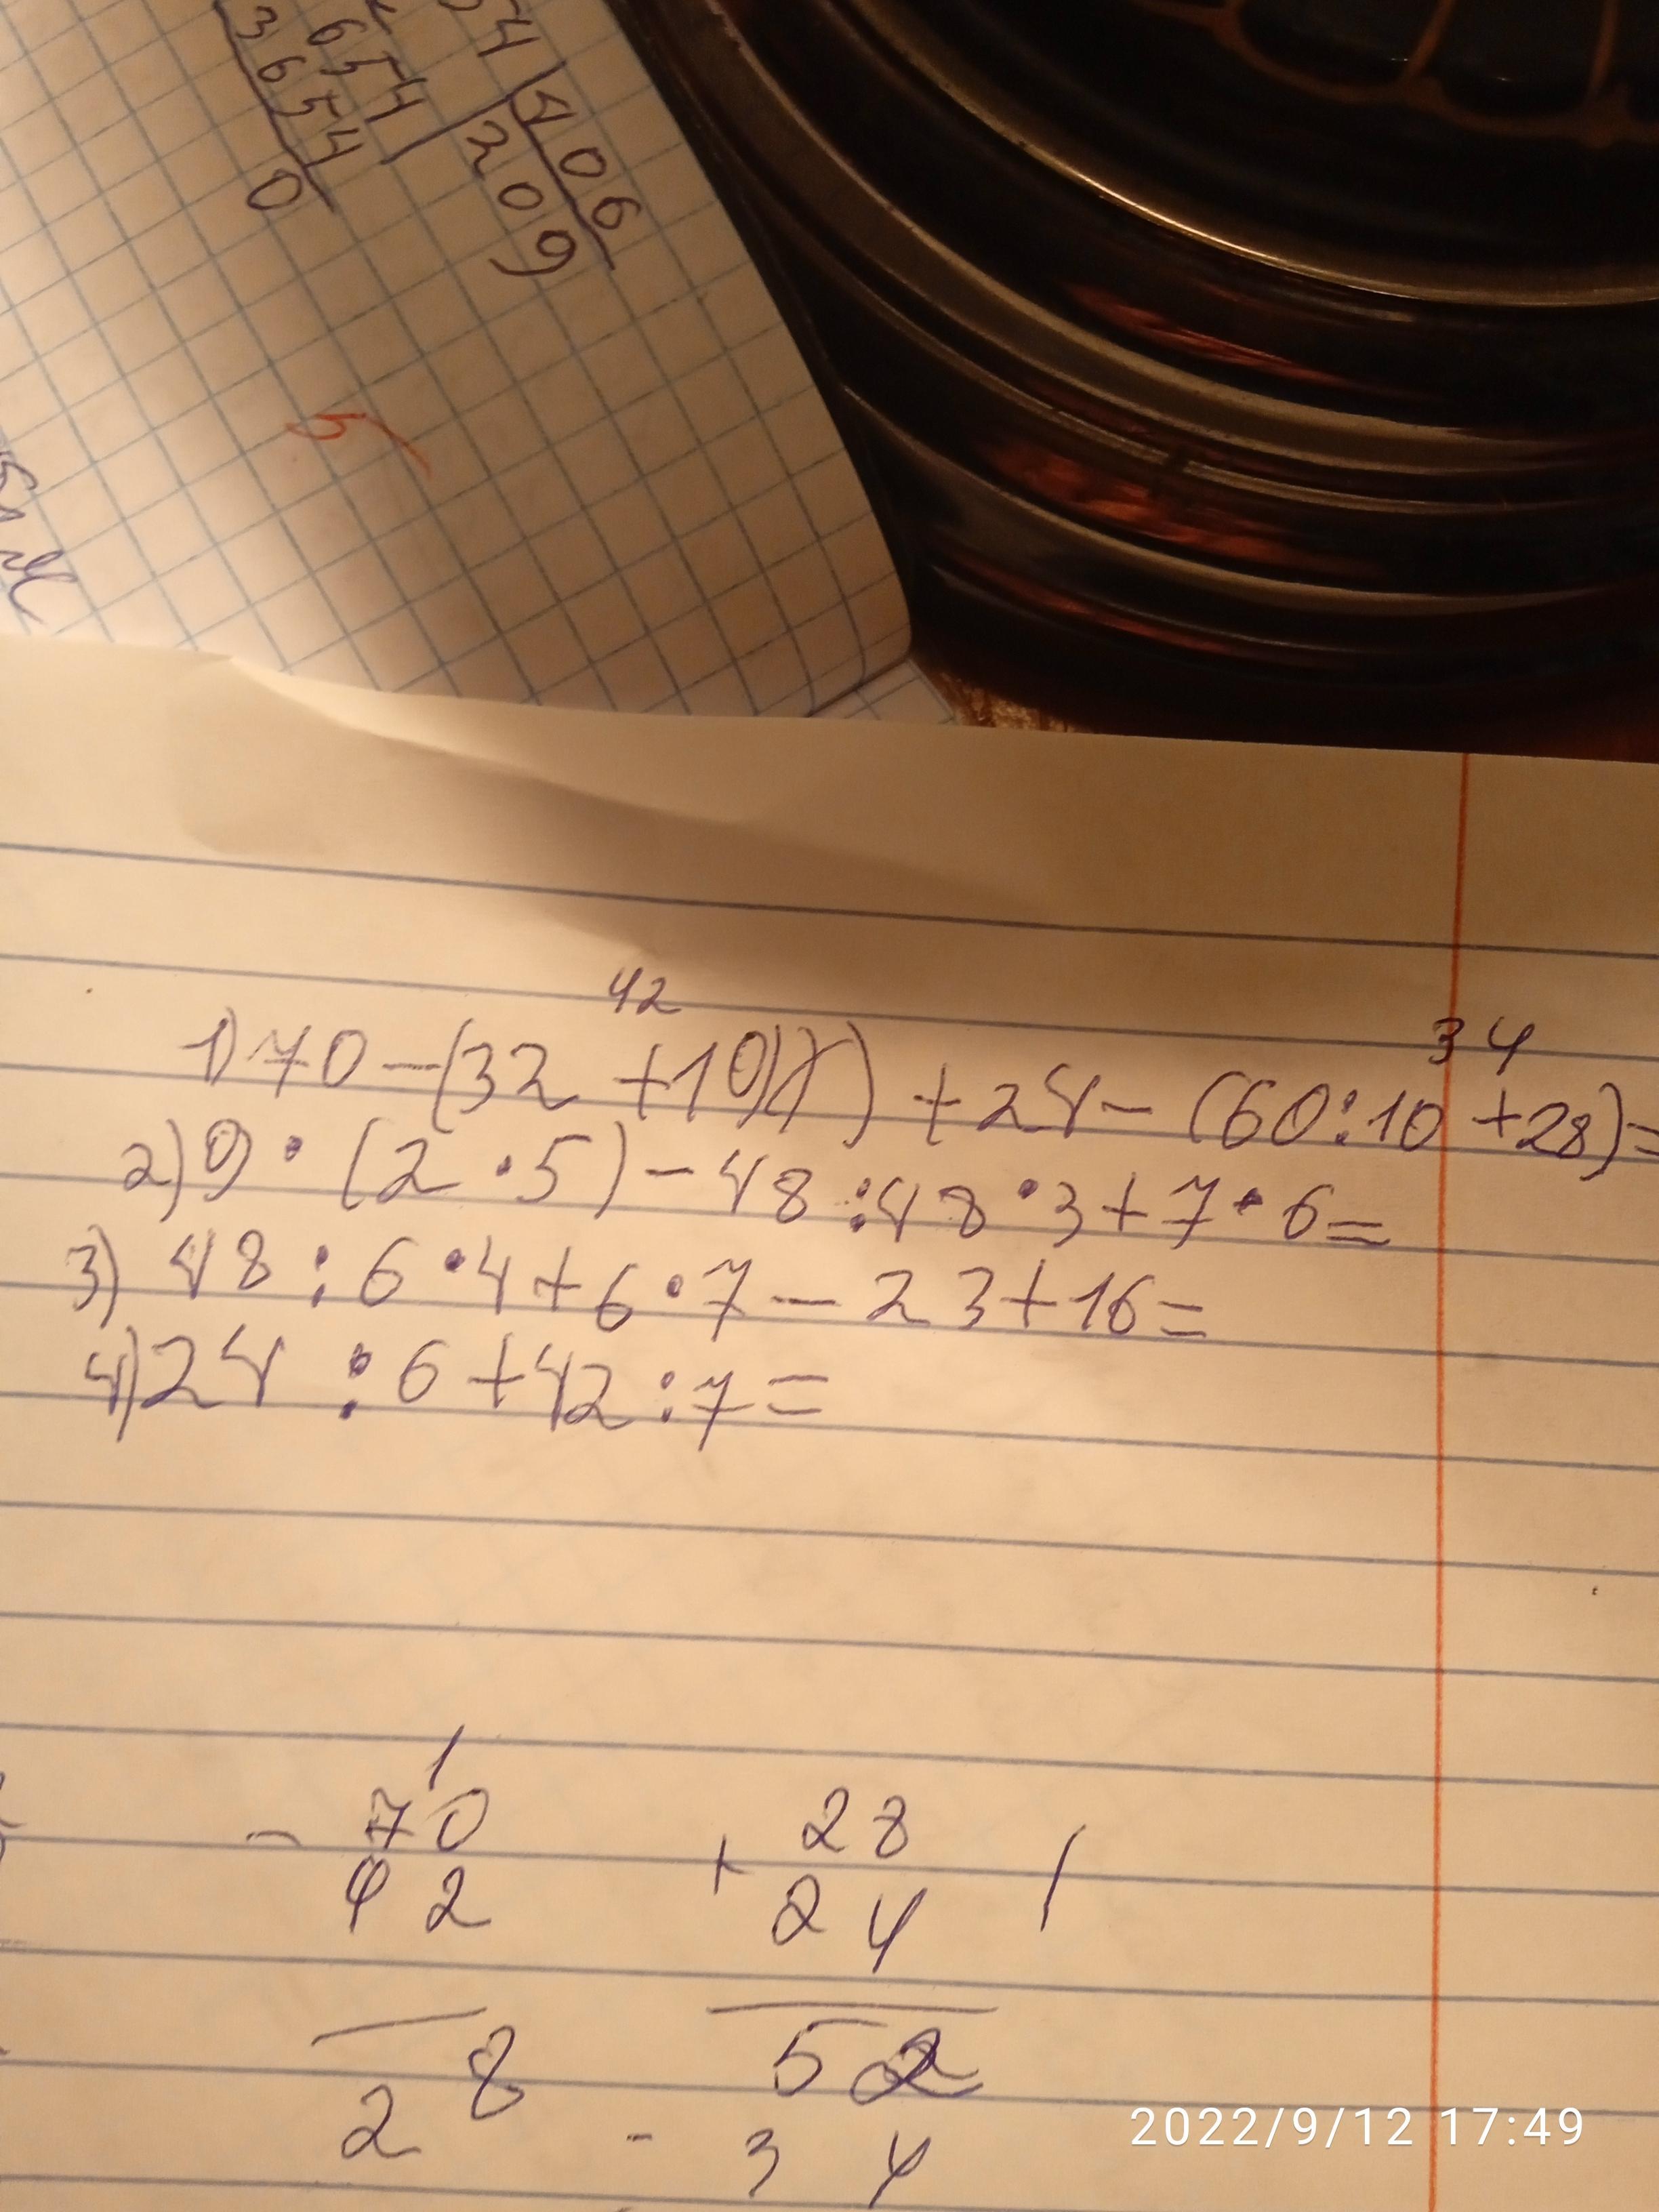 54 | 406
654 | 209
3654
0
5
42
34
1) 70-(32+10)) + 24-(60:10+28)=
2) 9·(2·5)-48:48·3+7·6=
3) 48:6·4+6·7-23+16=
4) 24:6+42:7=
1
- 70 + 28
42 24
28 52
- 34
2022/9/12 17:49